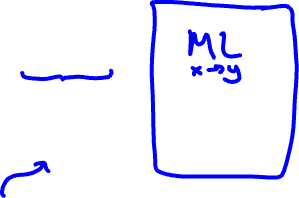 ML
x→y